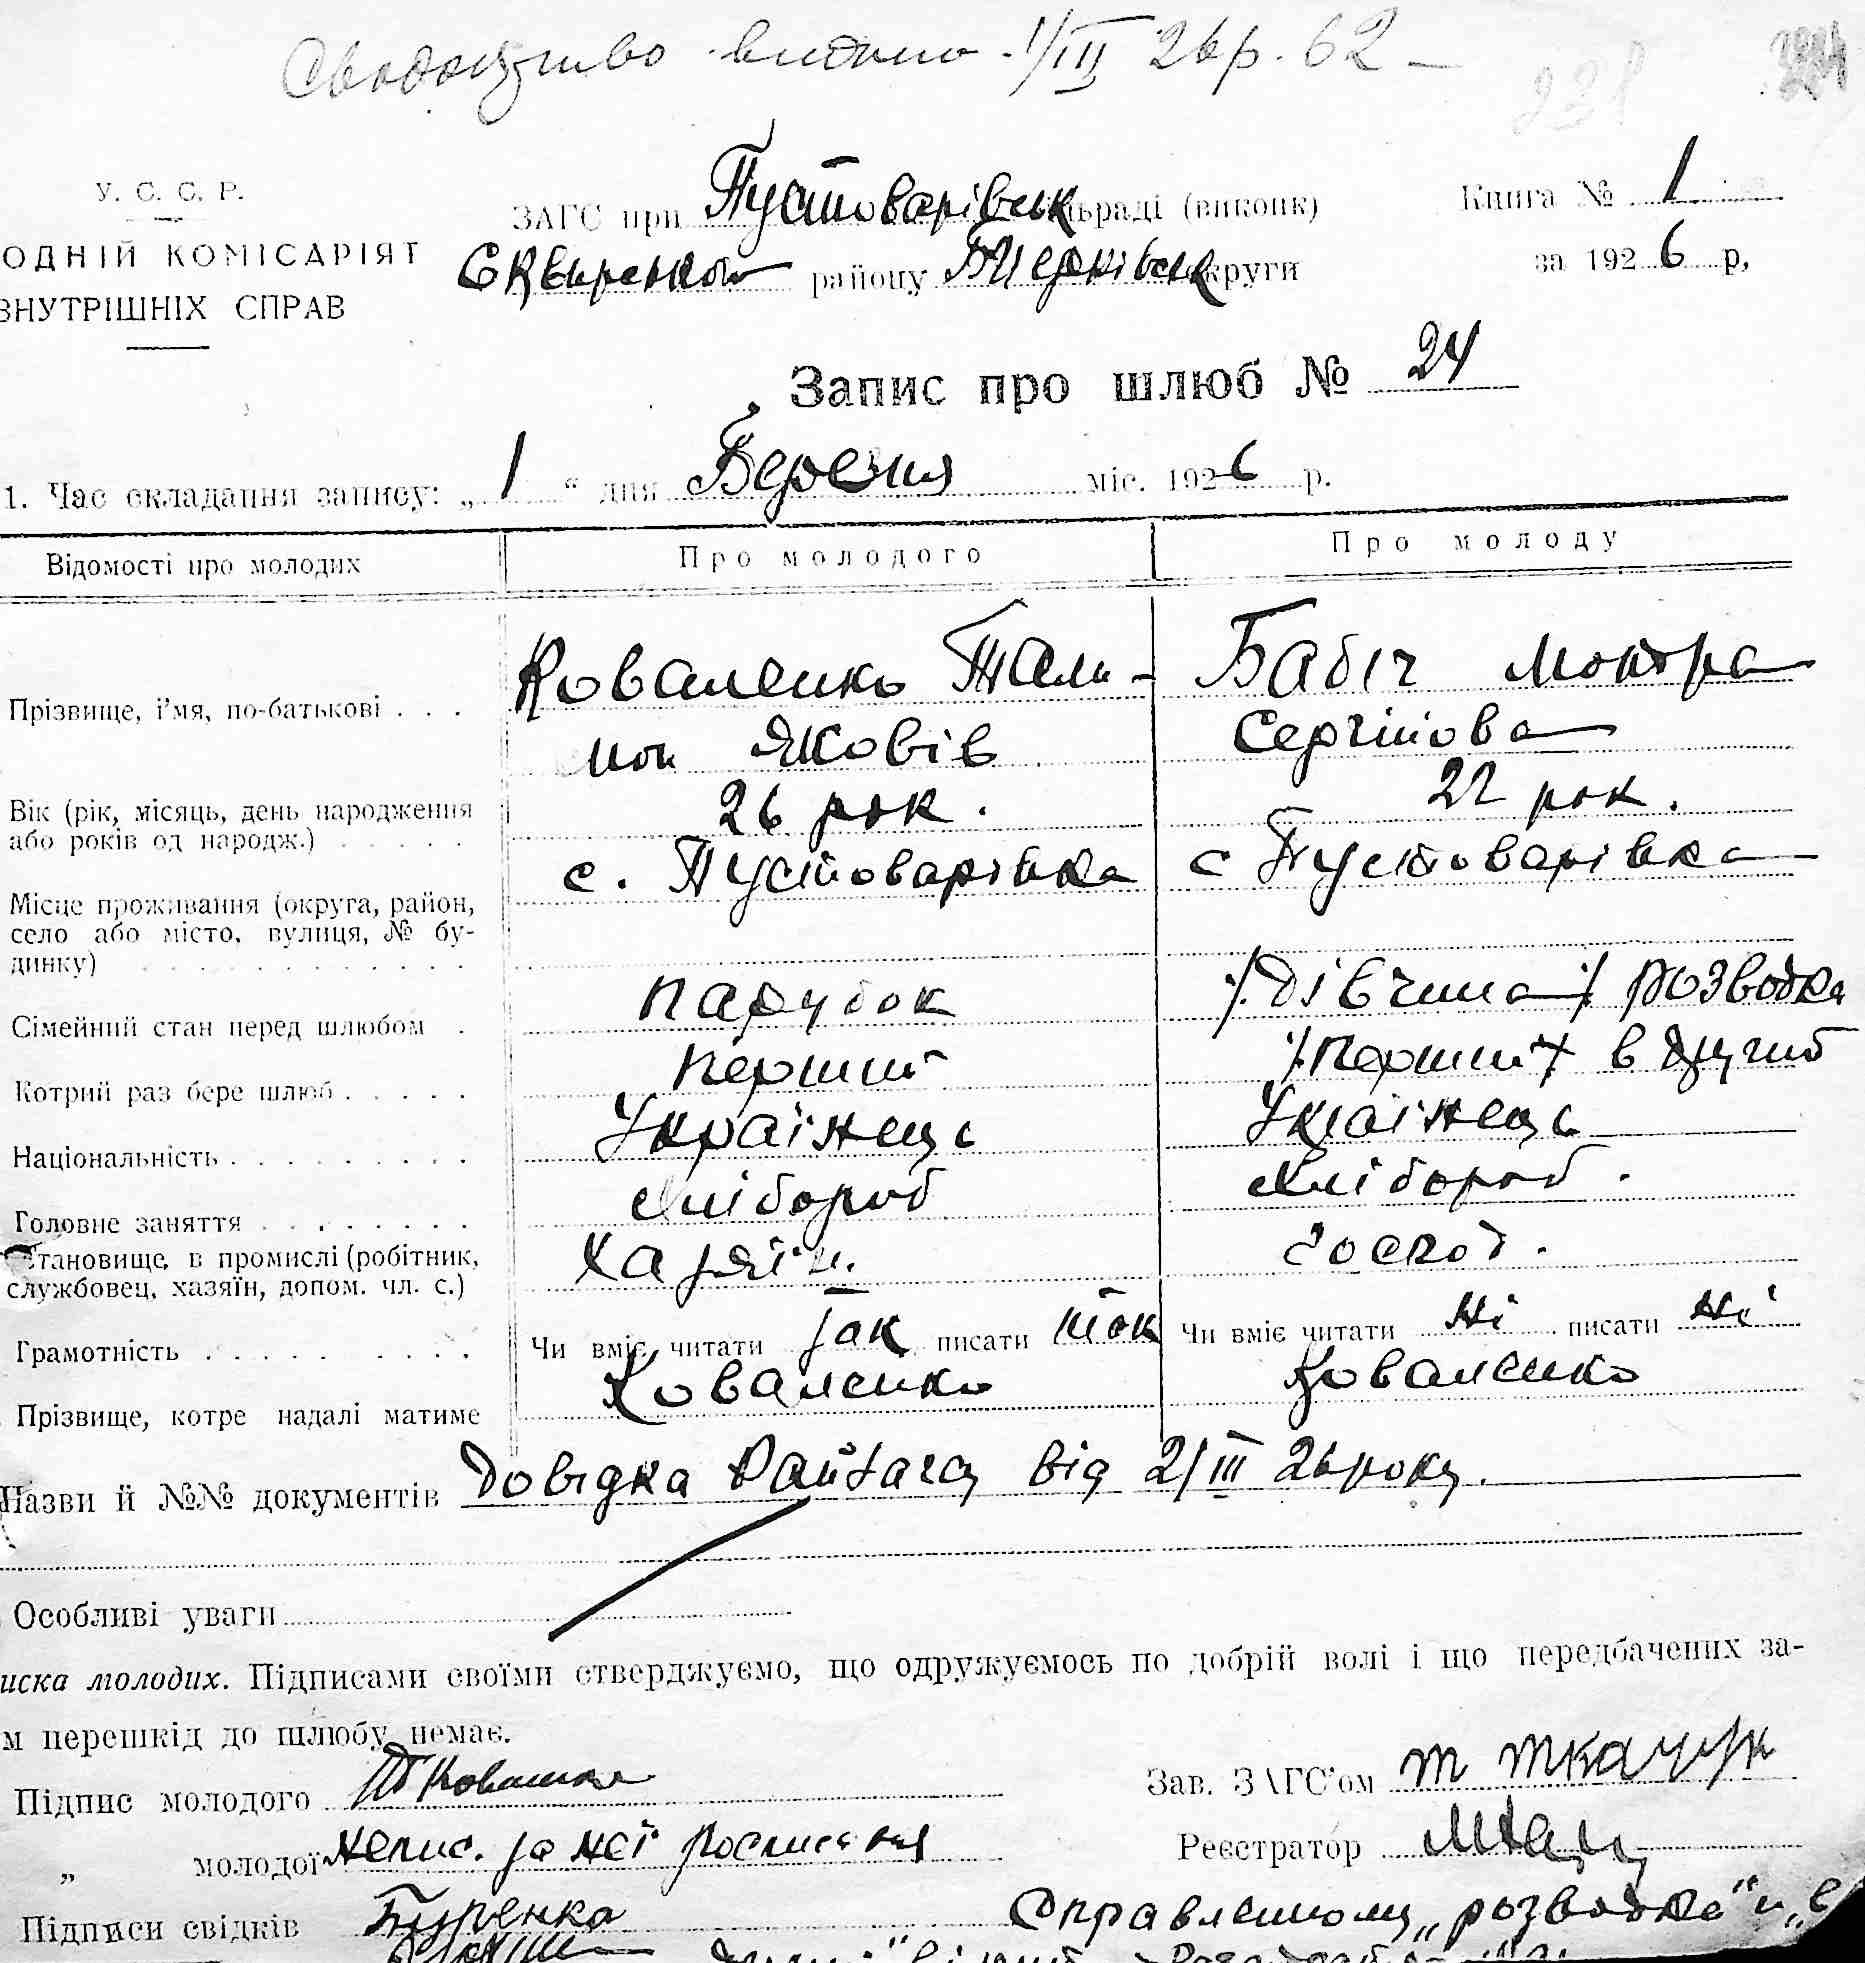 Свідоцтво видано 1/III 26 р. 62
231
У. С. С. Р.
ОДНІЙ КОМІСАРІЯТ
ВНУТРІШНІХ СПРАВ
ЗАГС при Пустоварівськ льраді (виконк)
Сквирськ району Б Церківськ округи
Книга № 1
за 1926 р,
Запис про шлюб № 24
1. Час складання запису: „ 1 " дня Березня міс. 1926 р.
Відомості про молодих Про молодого Про молоду
Прізвище, і'мя, по-батькові . . . Коваленко Пали- Бабіч Мотра
мон Яковів Сергіїова
Вік (рік, місяць, день народження
або років од народж.) . . . . . 26 рок. 22 рок.
Місце проживання (округа, район,
село або місто, вулиця, № бу-
динку) . . . . . с. Пустоварівка с Пустоварівка
Сімейний стан перед шлюбом . парубок /. дівчина ./ розводка
Котрий раз бере шлюб . . . . . перший /. перший ./ в другий
Національність . . . . . Українець Українець
Головне заняття . . . . . хлібороб хлібороб.
Становище в промислі (робітник,
службовец, хазяїн, допом. чл. с.) Хазяїн. господ.
Грамотність . . . . . Чи вміє читати так писати так Чи вміє читати ні писати ні
Прізвище, котре надалі матиме Коваленко Коваленко
Назви й №№ документів Довідка Райзагсу від 2/III 26 року.
Особливі уваги
иска молодих. Підписами своїми стверджуємо, що одружуємось по добрій волі і що передбачених за-
м перешкід до шлюбу немає.
Підпис молодого П Коваленко
Зав. ЗАГС'ом Т Ткачук
„ молодої непис. за неї росписався
Реєстратор
Підписи свідків
Справленому „розводка" и „в